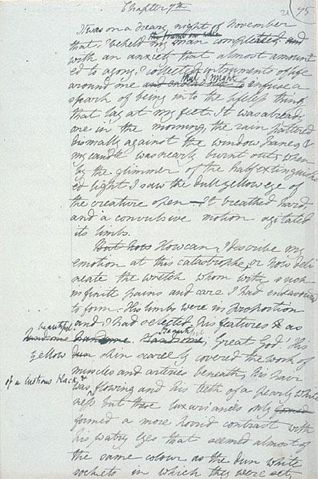 Chapter 7th
75
It was on a dreary night of November
that I beheld my man completed and
the frame on whic
with an anxiety that almost amount
ed to agony I collected instruments of life
around me and that I might infuse a
spark of being into the lifeless thing
that lay at my feet. It was already
one in the morning, the rain pattered
dismally against the window panes, &
my candle was nearly burnt out, when
by the glimmer of the half extinguish
ed light I saw the dull yellow eye of
the creature open It breathed hard
and a convulsive motion agitated
its limbs.
But how How can I describe my
emotion at this catastrophe; or how deli
neate the wretch whom with such
infinite pains and care I had endeavoured
to form. His limbs were in proportion
and I had selected his features as
beautiful
handsome Handsome Great God! His
yellow skin scarcely covered the work of
muscles and arteries beneath; his hair
of a lustrous black &
was flowing and his teeth of a pearly white
ness but these luxuriancies only
formed a more horrid contrast with
his watry eyes that seemed almost of
the same colour as the dun white
sockets in which they were set,